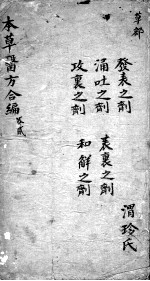 草部
發表之劑
涌吐之劑
攻裏之劑
表裏之劑
和解之劑
渭玲氏
本草醫方合編